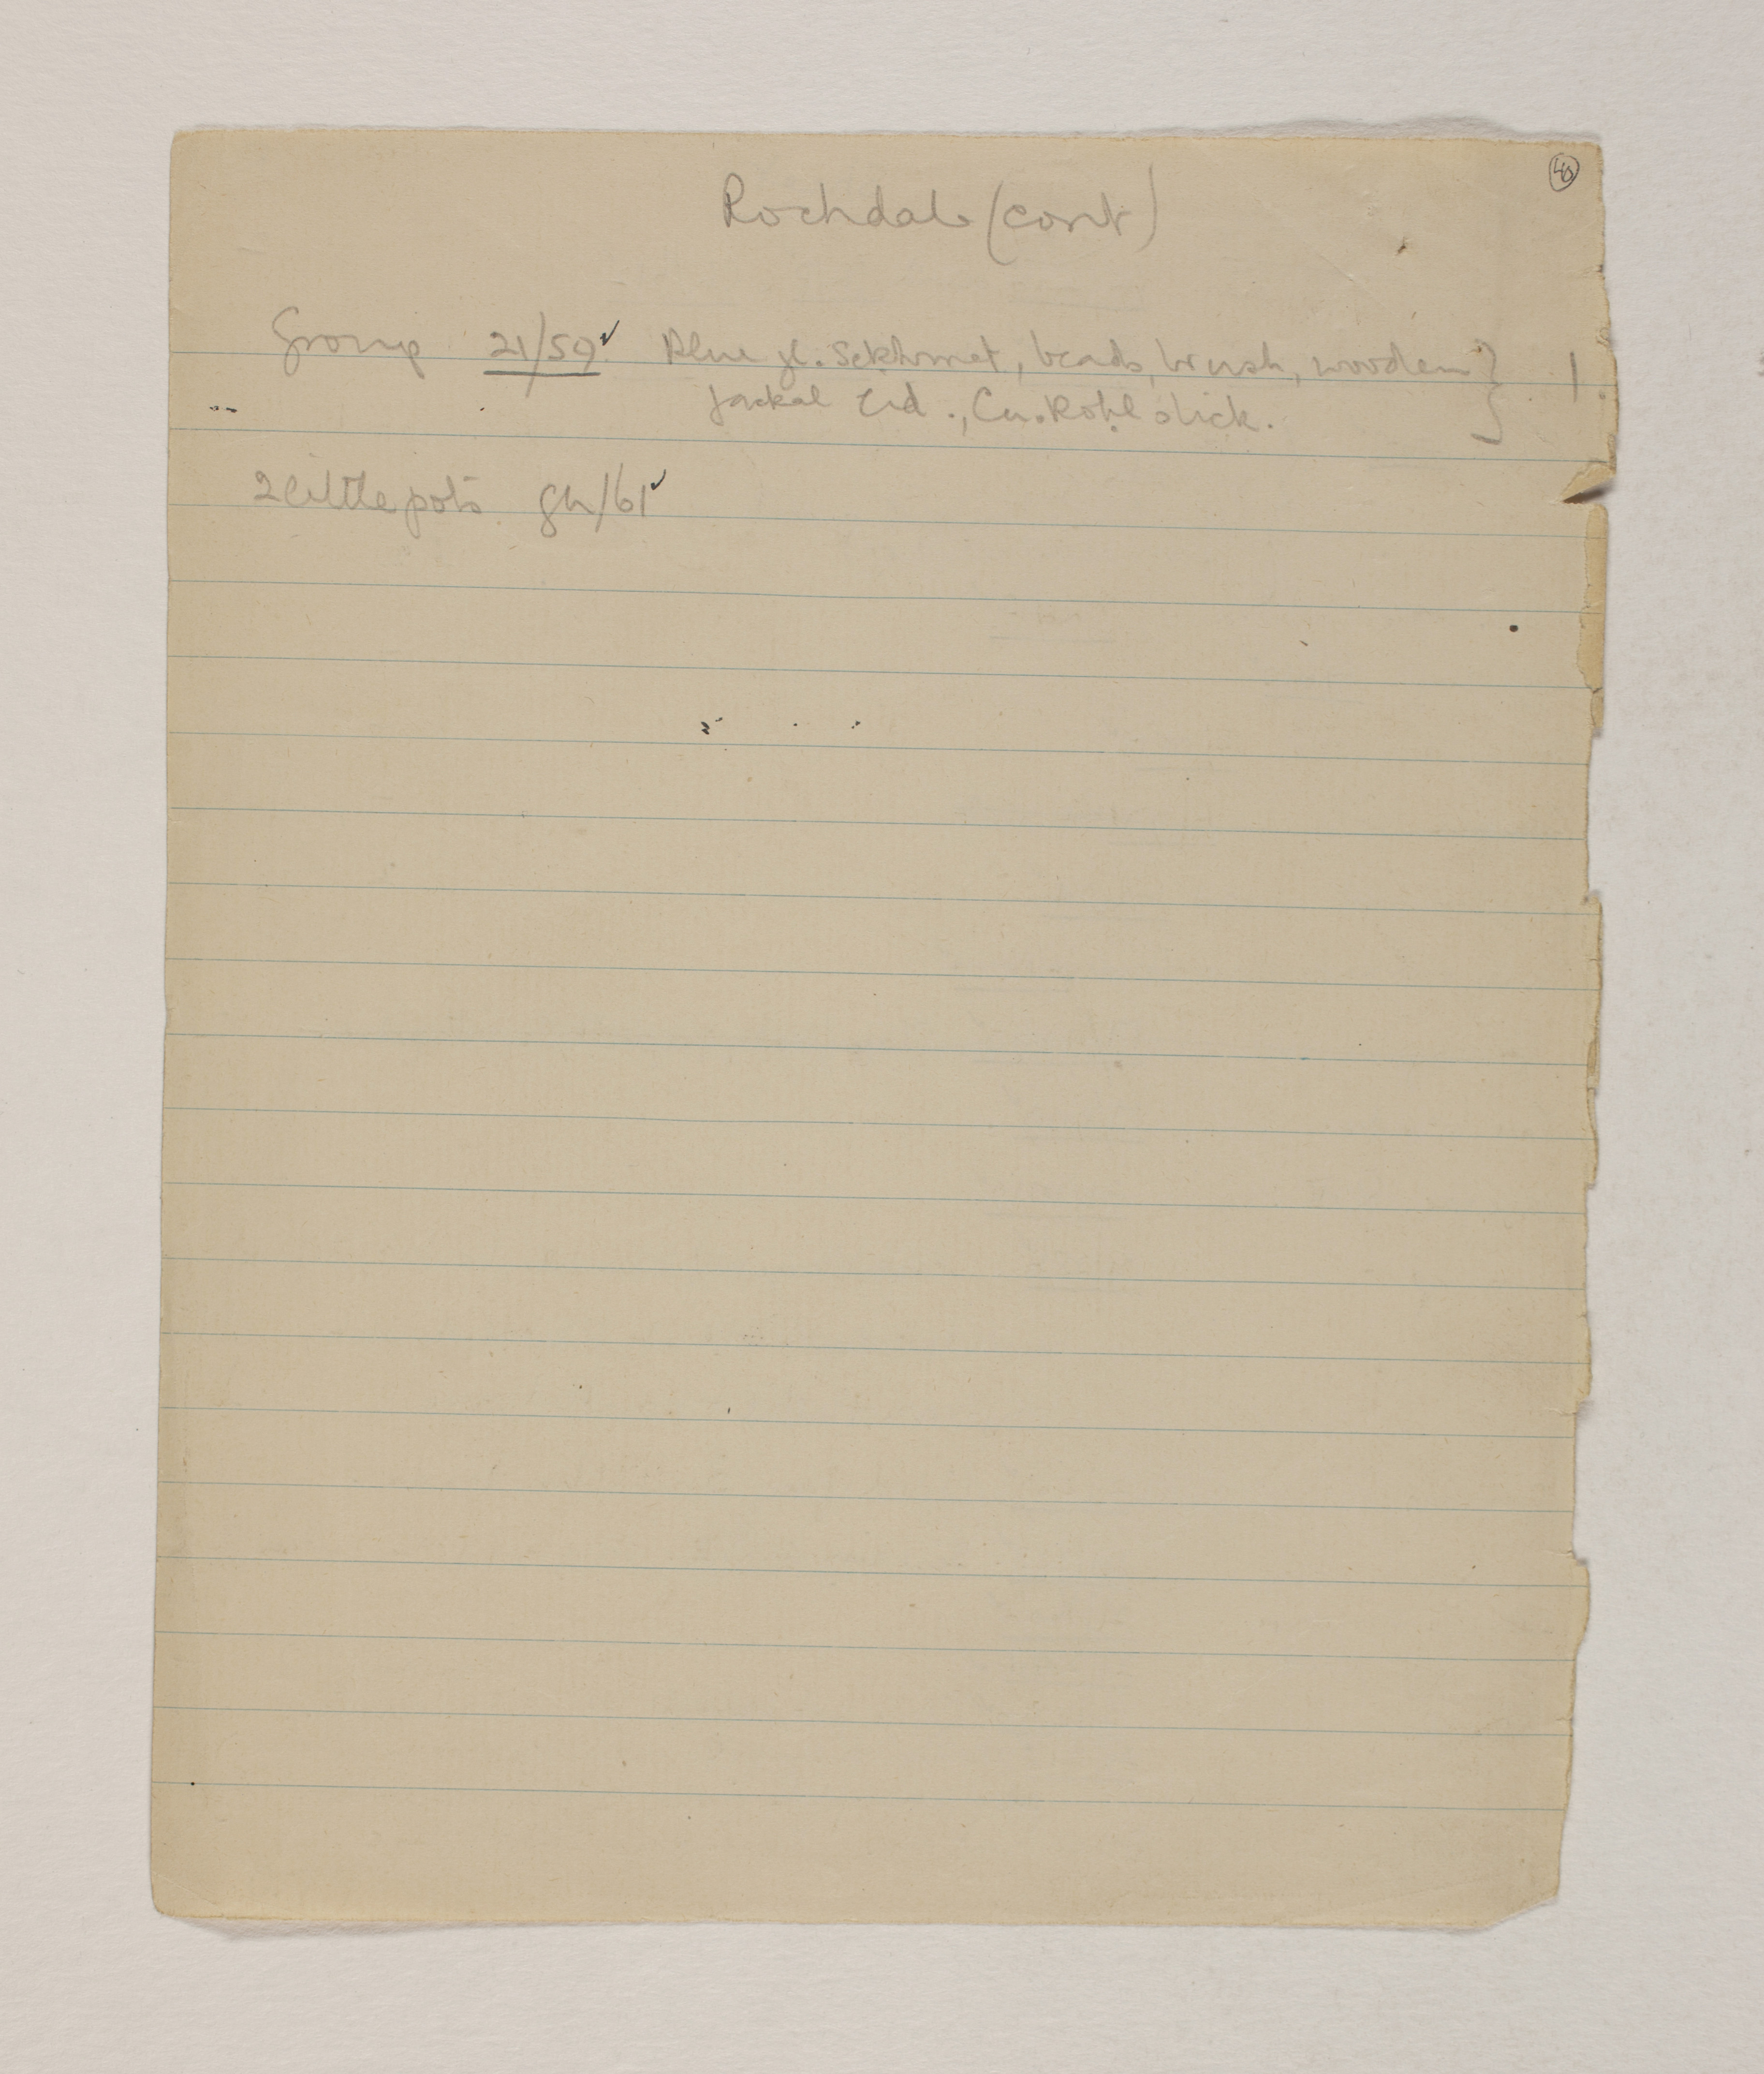 40
Rochdale (cont)
Group 21/59 ✓ Blue gl. Sekhmet, beads, brush, wooden } 1.
Jackal lid., Cu. Kohl stick.
2 little pots. gn/61 ✓